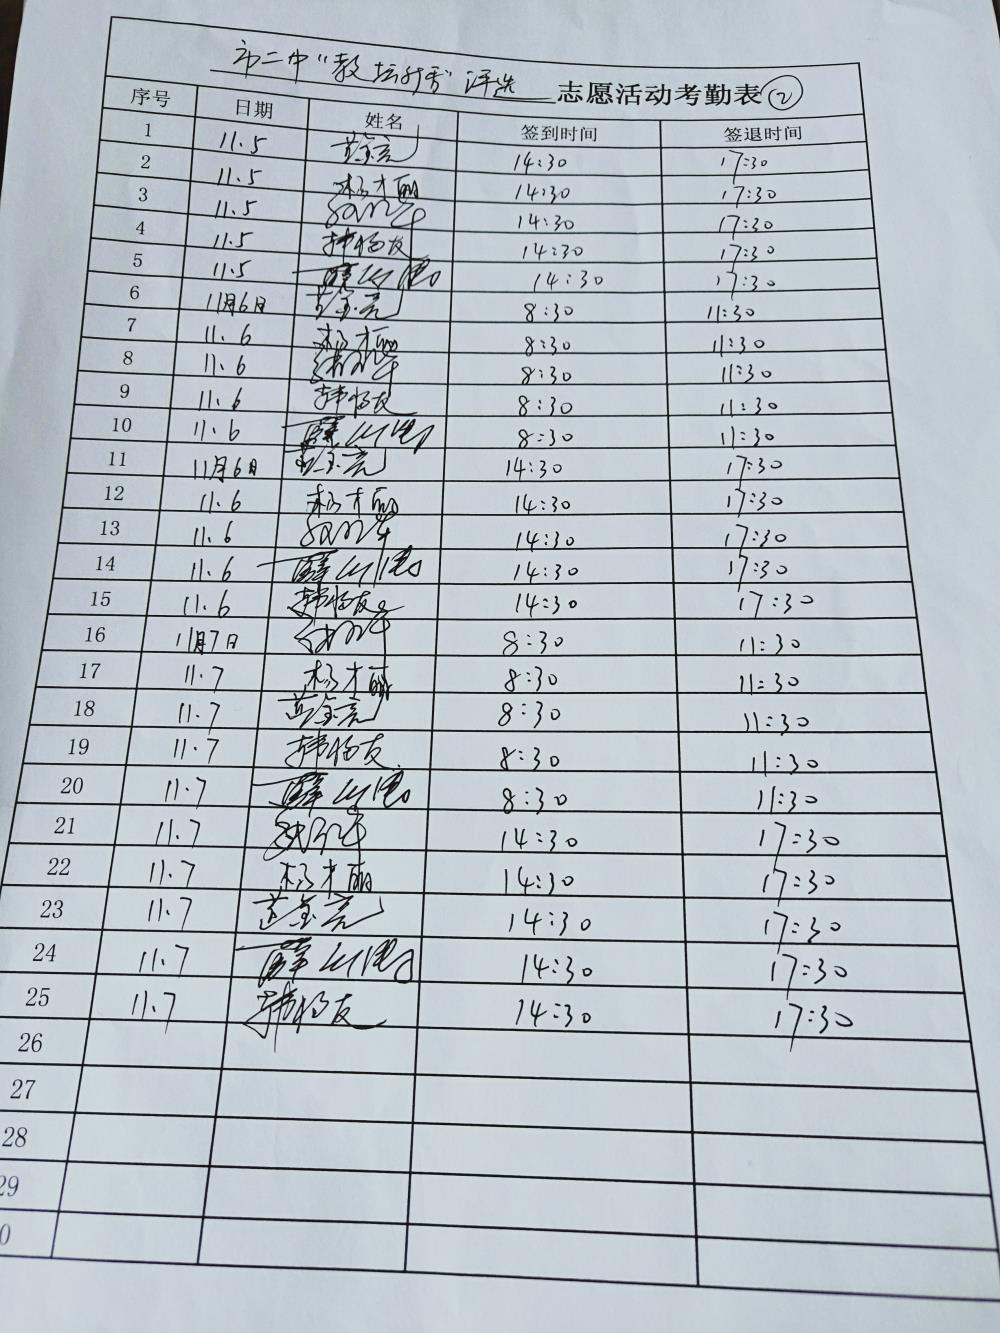 市二中“教坛新秀”评选 志愿活动考勤表②
序号 日期 姓名 签到时间 签退时间
1 11.5 14:30 17:30
2 11.5 杨才丽 14:30 17:30
3 11.5 14:30 17:30
4 11.5 韩杨友 14:30 17:30
5 11.5 14:30 17:30
6 11月6日 8:30 11:30
7 11.6 杨才丽 8:30 11:30
8 11.6 8:30 11:30
9 11.6 韩杨友 8:30 11:30
10 11.6 8:30 11:30
11 11月6日 14:30 17:30
12 11.6 杨才丽 14:30 17:30
13 11.6 14:30 17:30
14 11.6 14:30 17:30
15 11.6 韩杨友 14:30 17:30
16 11月7日 8:30 11:30
17 11.7 杨才丽 8:30 11:30
18 11.7 8:30 11:30
19 11.7 韩杨友 8:30 11:30
20 11.7 8:30 11:30
21 11.7 14:30 17:30
22 11.7 杨才丽 14:30 17:30
23 11.7 14:30 17:30
24 11.7 14:30 17:30
25 11.7 韩杨友 14:30 17:30
26
27
28
29
0